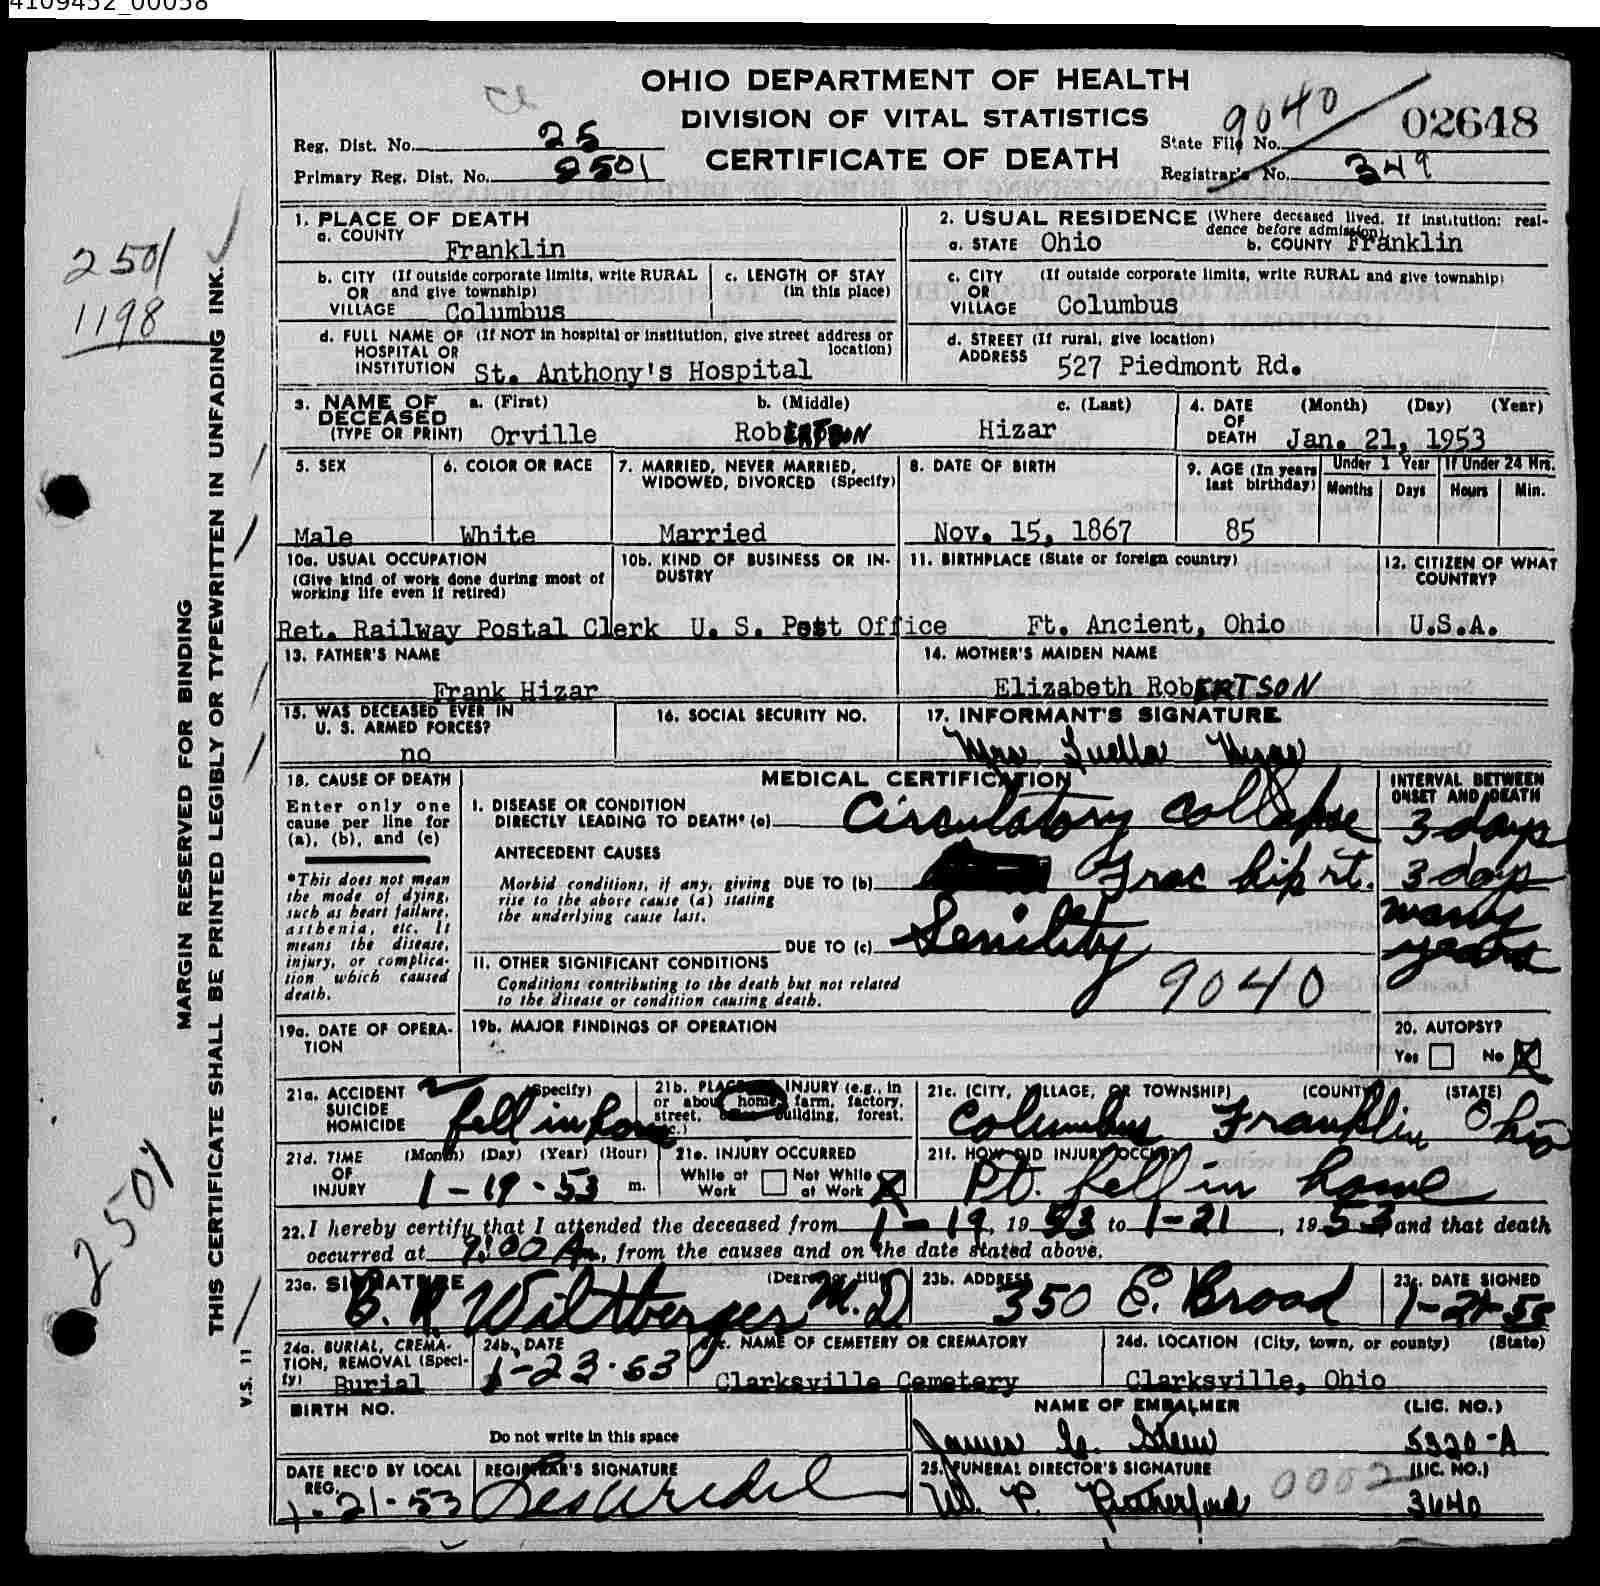 4109452_00058
OHIO DEPARTMENT OF HEALTH
DIVISION OF VITAL STATISTICS
CERTIFICATE OF DEATH
Reg. Dist. No. 25
Primary Reg. Dist. No. 2501
9040
State File No.
02648
Registrar's No. 349
2501
1198
2501
MARGIN RESERVED FOR BINDING
THIS CERTIFICATE SHALL BE PRINTED LEGIBLY OR TYPEWRITTEN IN UNFADING INK.
V.S. 11
1. PLACE OF DEATH
a. COUNTY
Franklin
b. CITY (If outside corporate limits, write RURAL
OR and give township)
VILLAGE Columbus
c. LENGTH OF STAY
(in this place)
d. FULL NAME OF (If NOT in hospital or institution, give street address or
HOSPITAL OR location)
INSTITUTION St. Anthony's Hospital
2. USUAL RESIDENCE (Where deceased lived. If institution: resi-
dence before admission)
a. STATE Ohio b. COUNTY Franklin
c. CITY (If outside corporate limits, write RURAL and give township)
OR
VILLAGE Columbus
d. STREET (If rural, give location)
ADDRESS 527 Piedmont Rd.
3. NAME OF a. (First) b. (Middle) c. (Last)
DECEASED
(TYPE OR PRINT) Orville RobERTSON Hizar
4. DATE (Month) (Day) (Year)
OF
DEATH Jan. 21, 1953
5. SEX
Male
6. COLOR OR RACE
White
7. MARRIED, NEVER MARRIED,
WIDOWED, DIVORCED (Specify)
Married
8. DATE OF BIRTH
Nov. 15, 1867
9. AGE (In years
last birthday)
85
Under 1 Year
Months Days
If Under 24 Hrs.
Hours Min.
10a. USUAL OCCUPATION
(Give kind of work done during most of
working life even if retired)
Ret. Railway Postal Clerk
10b. KIND OF BUSINESS OR IN-
DUSTRY
U. S. Post Office
11. BIRTHPLACE (State or foreign country)
Ft. Ancient, Ohio
12. CITIZEN OF WHAT
COUNTRY?
U.S.A.
13. FATHER'S NAME
Frank Hizar
14. MOTHER'S MAIDEN NAME
Elizabeth RobERTSON
15. WAS DECEASED EVER IN
U. S. ARMED FORCES?
no
16. SOCIAL SECURITY NO.
17. INFORMANT'S SIGNATURE
Mrs Luella Hizar
18. CAUSE OF DEATH
Enter only one
cause per line for
(a), (b), and (c)
*This does not mean
the mode of dying,
such as heart failure,
asthenia, etc. It
means the disease,
injury, or complica-
tion which caused
death.
MEDICAL CERTIFICATION
I. DISEASE OR CONDITION
DIRECTLY LEADING TO DEATH* (a) Circulatory collapse
ANTECEDENT CAUSES
Morbid conditions, if any, giving DUE TO (b) Frac hip rt.
rise to the above cause (a) stating
the underlying cause last.
DUE TO (c) Senility
II. OTHER SIGNIFICANT CONDITIONS
Conditions contributing to the death but not related
to the disease or condition causing death.
9040
INTERVAL BETWEEN
ONSET AND DEATH
3 days
3 days
many
years
19a. DATE OF OPERA-
TION
19b. MAJOR FINDINGS OF OPERATION
20. AUTOPSY?
Yes No X
21a. ACCIDENT (Specify)
SUICIDE
HOMICIDE
fell in home
21b. PLACE OF INJURY (e.g., in
or about home, farm, factory,
street, office building, forest,
etc.)
21c. (CITY, VILLAGE, OR TOWNSHIP) (COUNTY) (STATE)
Columbus Franklin Ohio
21d. TIME (Month) (Day) (Year) (Hour)
OF
INJURY 1-19-53 m.
21e. INJURY OCCURRED
While at Not While
Work at Work X
21f. HOW DID INJURY OCCUR?
Pt. fell in home
22. I hereby certify that I attended the deceased from 1-19, 1953 to 1-21, 1953 and that death
occurred at 9:00 Am, from the causes and on the date stated above.
23a. SIGNATURE (Degree or title)
Wiltberger M.D
23b. ADDRESS
350 E. Broad
23c. DATE SIGNED
1-21-53
24a. BURIAL, CREMA-
TION, REMOVAL (Speci-
fy) Burial
24b. DATE
1-23-53
24c. NAME OF CEMETERY OR CREMATORY
Clarksville Cemetery
24d. LOCATION (City, town, or county) (State)
Clarksville, Ohio
BIRTH NO.
Do not write in this space
NAME OF EMBALMER (LIC. NO.)
James 5320-A
DATE REC'D BY LOCAL
REG.
1-21-53
REGISTRAR'S SIGNATURE
25. FUNERAL DIRECTOR'S SIGNATURE (LIC. NO.)
0002
W. P. Rutherford 3640